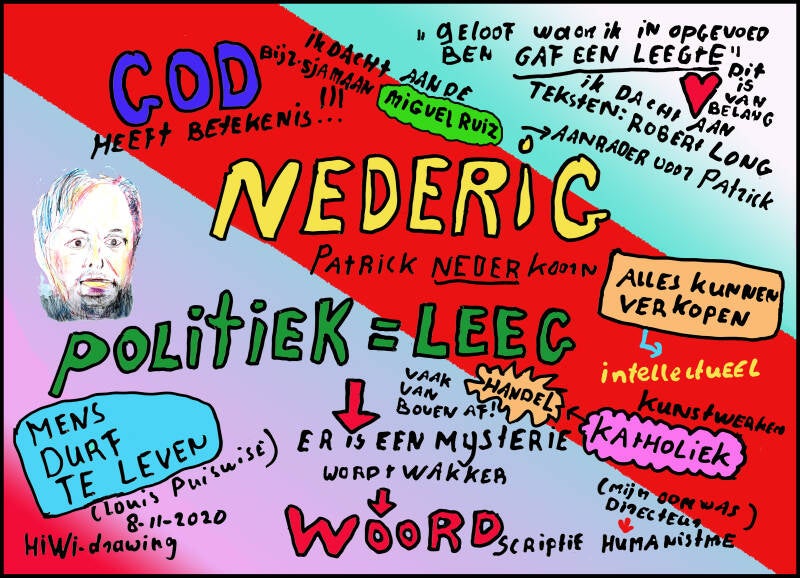 GOD
HEEFT BETEKENIS...
!!!
ik DACHT AAN DE
Bijz. SJAMAAN
MIGUEL RUIZ
"GELOOF WAAR iK iN OPGEVOED
BEN GAF EEN LEEGTE"
DiT
iS
VAN
BELANG
ik DACHT AAN
TEKSTEN: ROBERT LONG
→ AANRADER VOOR PATRICK
NEDERiG
PATRICK NEDERKOORN
ALLES KUNNEN
VERKOPEN
intellectueel
KUNSTWERKEN
POLiTiEK = LEEG
VAAK
VAN
BOVEN AF!
HANDEL
KATHOLiEK
MENS
DURF
TE LEVEN
(Louis Puiswise)
8-11-2020
HiWi-drawing
ER is EEN MYSTERIE
WORDT WAKKER
WOORD
SCRIPTIE
(MijN OOM WAS)
DIRECTEUR
HUMANISTME